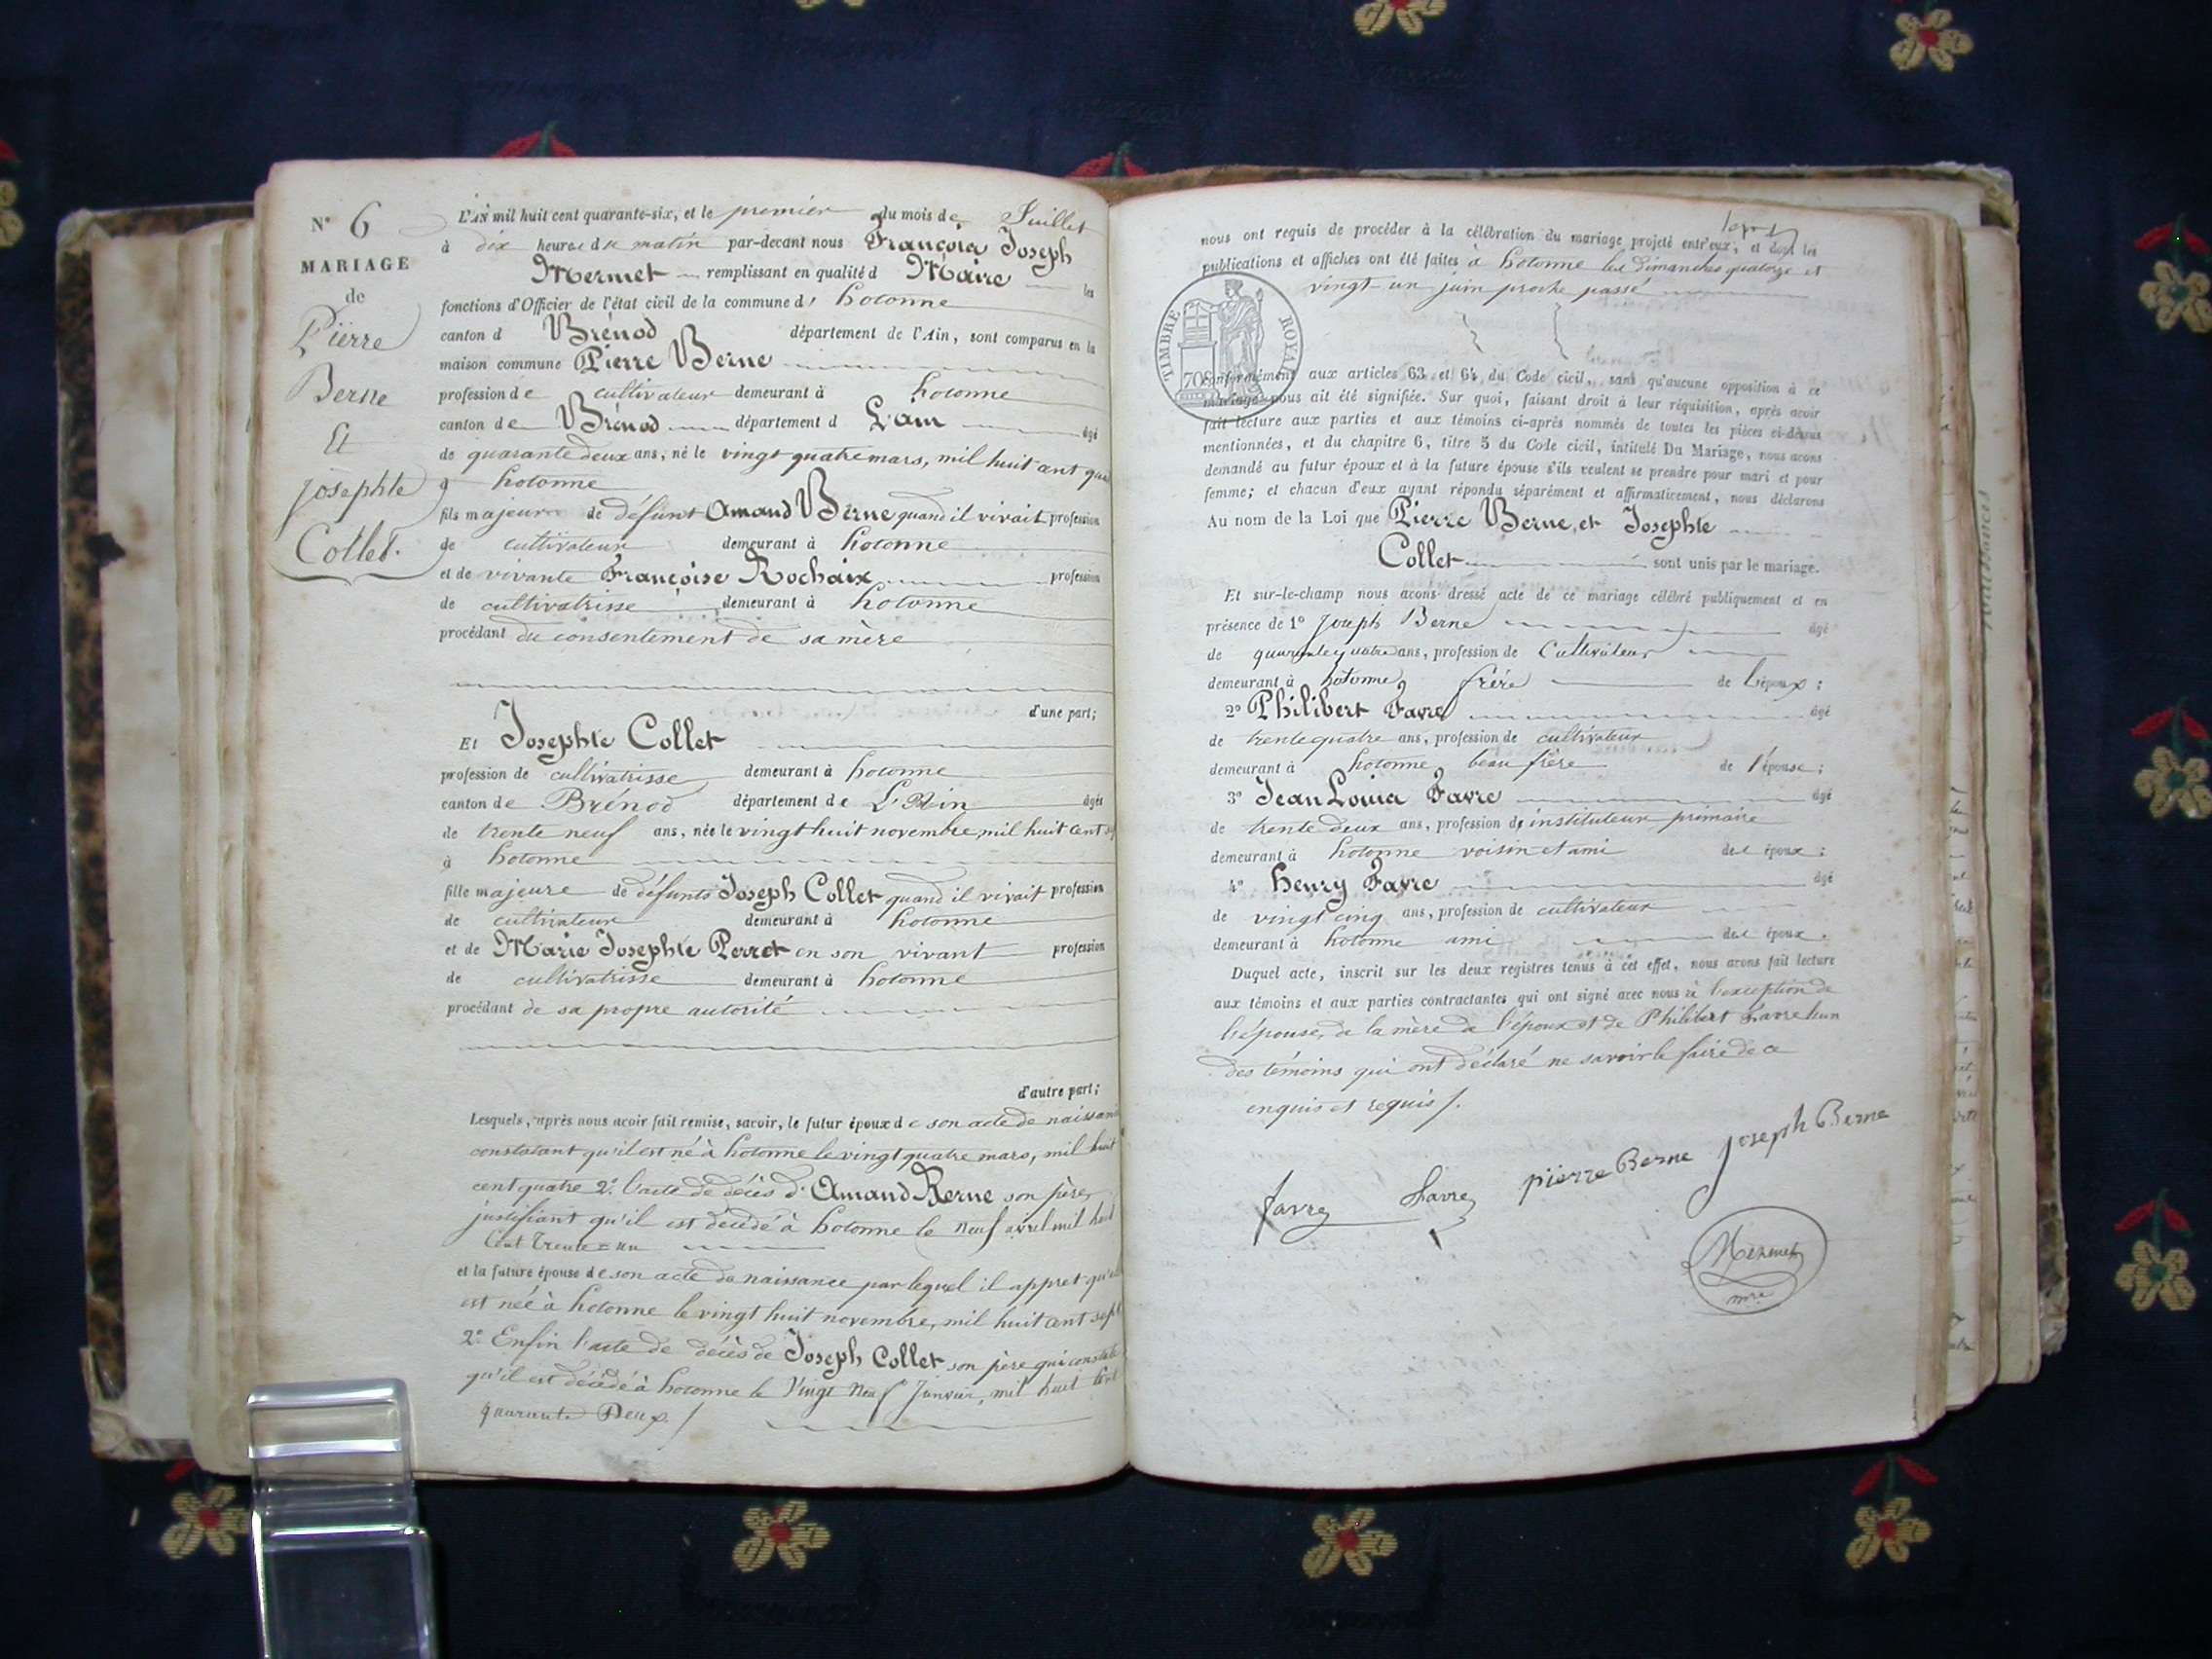 N° 6
MARIAGE
de
Pierre
Berne
Et
Josephte
Collet.
L'AN mil huit cent quarante-six, et le premier du mois de Juillet
à dix heures du matin par-devant nous François Joseph
Mermet remplissant en qualité d Maire les
fonctions d'Officier de l'état civil de la commune d' hotonne
canton d Brénod département de l'Ain, sont comparus en la
maison commune Pierre Berne
profession de cultivateur demeurant à hotonne
canton de Brénod département d L'ain âgé
de quarante deux ans, né le vingt quatre mars, mil huit cent qua
à hotonne
fils majeur de défunt Amand Berne quand il vivait profession
de cultivateur demeurant à hotonne
et de vivante Françoise Rochaix profession
de cultivatrisse demeurant à hotonne
procédant du consentement de sa mère
d'une part;
Et Josephte Collet
profession de cultivatrisse demeurant à hotonne
canton de Brénod département de L'Ain âgée
de trente neuf ans, née le vingt huit novembre, mil huit cent
à hotonne
fille majeure de défunts Joseph Collet quand il vivait profession
de cultivateur demeurant à hotonne
et de Marie Josephte Perret en son vivant profession
de cultivatrisse demeurant à hotonne
procédant de sa propre autorité
d'autre part;
Lesquels, après nous avoir fait remise, savoir, le futur époux de son acte de naissan
constatant qu'il est né à hotonne le vingt quatre mars, mil huit
cent quatre 2° l'acte de décès d'Amand Berne son père
justifiant qu'il est décédé à hotonne le neuf avril mil huit
Cent Trente = un
et la future épouse de son acte de naissance par lequel il appret qu'
est née à hotonne le vingt huit novembre, mil huit cent sept
2° Enfin l'acte de décès de Joseph Collet son père qui constate
qu'il est décédé à hotonne le Vingt Neuf Janvier, mil huit Cent
quarante Deux /
nous ont requis de procéder à la célébration du mariage projeté entr'eux, et dont les
publications et affiches ont été faites à hotonne les dimanches quatorze et
vingt-un juin proche passé
TIMBRE ROYAL
70
conformément aux articles 63 et 64 du Code civil, sans qu'aucune opposition à ce
mariage nous ait été signifiée. Sur quoi, faisant droit à leur réquisition, après avoir
fait lecture aux parties et aux témoins ci-après nommés de toutes les pièces ci-dessus
mentionnées, et du chapitre 6, titre 5 du Code civil, intitulé Du Mariage, nous avons
demandé au futur époux et à la future épouse s'ils veulent se prendre pour mari et pour
femme; et chacun d'eux ayant répondu séparément et affirmativement, nous déclarons
Au nom de la Loi que Pierre Berne, et Josephte
Collet sont unis par le mariage.
Et sur-le-champ nous avons dressé acte de ce mariage célébré publiquement et en
présence de 1° Joseph Berne âgé
de quarante quatre ans, profession de Cultivateur
demeurant à hotonne, frère de l'époux;
2° Philibert Favre âgé
de trente quatre ans, profession de cultivateur
demeurant à hotonne beau frère de l'épouse;
3° Jean Louis Favre âgé
de trente deux ans, profession de instituteur primaire
demeurant à hotonne voisin et ami des époux;
4° henry Favre âgé
de vingt cinq ans, profession de cultivateur
demeurant à hotonne ami des époux.
Duquel acte, inscrit sur les deux registres tenus à cet effet, nous avons fait lecture
aux témoins et aux parties contractantes qui ont signé avec nous à l'exception de
l'épouse, de la mère de l'époux et de Philibert Favre l'un
des témoins qui ont déclaré ne savoir le faire de ce
enquis et requis /.
Favre Favre pierre Berne Joseph Berne
Mermet
mre